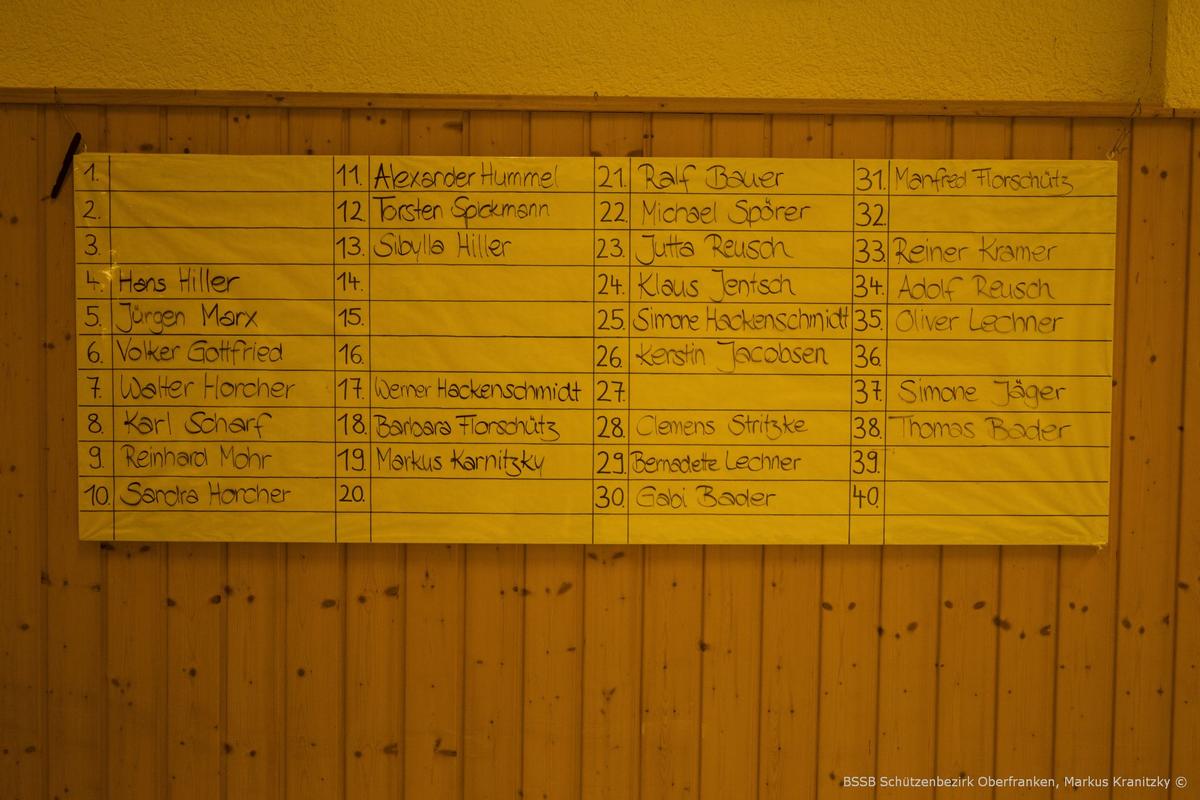 1.
2.
3.
4. Hans Hiller
5. Jürgen Marx
6. Volker Gottfried
7. Walter Horcher
8. Karl Scharf
9. Reinhard Mohr
10. Sandra Horcher
11. Alexander Hummel
12. Torsten Spickmann
13. Sibylla Hiller
14.
15.
16.
17. Werner Hackenschmidt
18. Barbara Florschütz
19. Markus Karnitzky
20.
21. Ralf Bauer
22. Michael Spörer
23. Jutta Reusch
24. Klaus Jentsch
25. Simone Hackenschmidt
26. Kerstin Jacobsen
27.
28. Clemens Stritzke
29. Bernadette Lechner
30. Gabi Bader
31. Manfred Florschütz
32.
33. Reiner Kramer
34. Adolf Reusch
35. Oliver Lechner
36.
37. Simone Jäger
38. Thomas Bader
39.
40.
BSSB Schützenbezirk Oberfranken, Markus Kranitzky ©